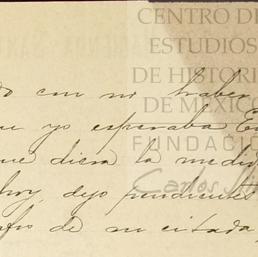 CENTRO DE
ESTUDIOS
DE HISTORIA
DE MÉXICO
FUNDACIÓN
Carlos Slim
do con no haber
que yo esperaba En
que diera la medid
hoy, dejo pendientes
de su citada,